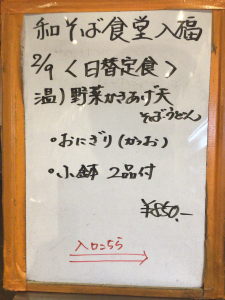 和そば食堂入福
2/9〈日替定食〉
温)野菜かきあげ天
そば・うどん
・おにぎり(かつお)
・小鉢 2品付
¥850.-
入口こちら